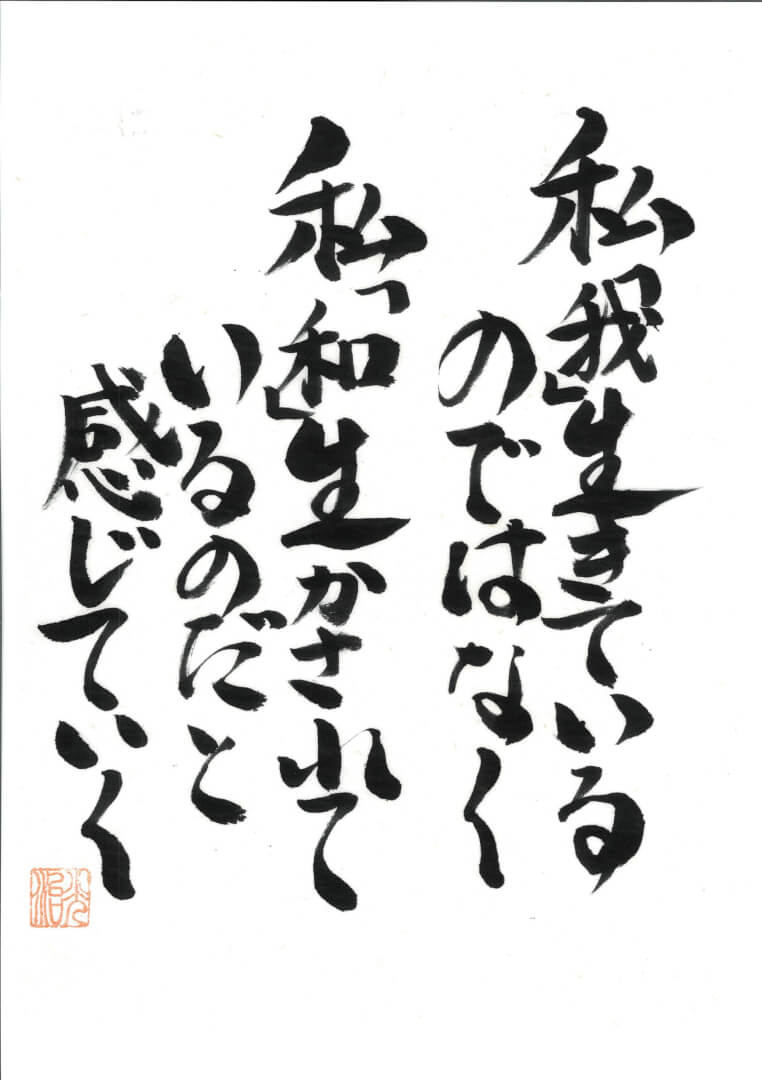 私「我」生きている
のではなく
私「和」生かされて
いるのだと
感じていく